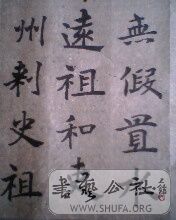 無假置
遠祖和
州刺史祖
書藝公社
WWW.SHUFA.ORG